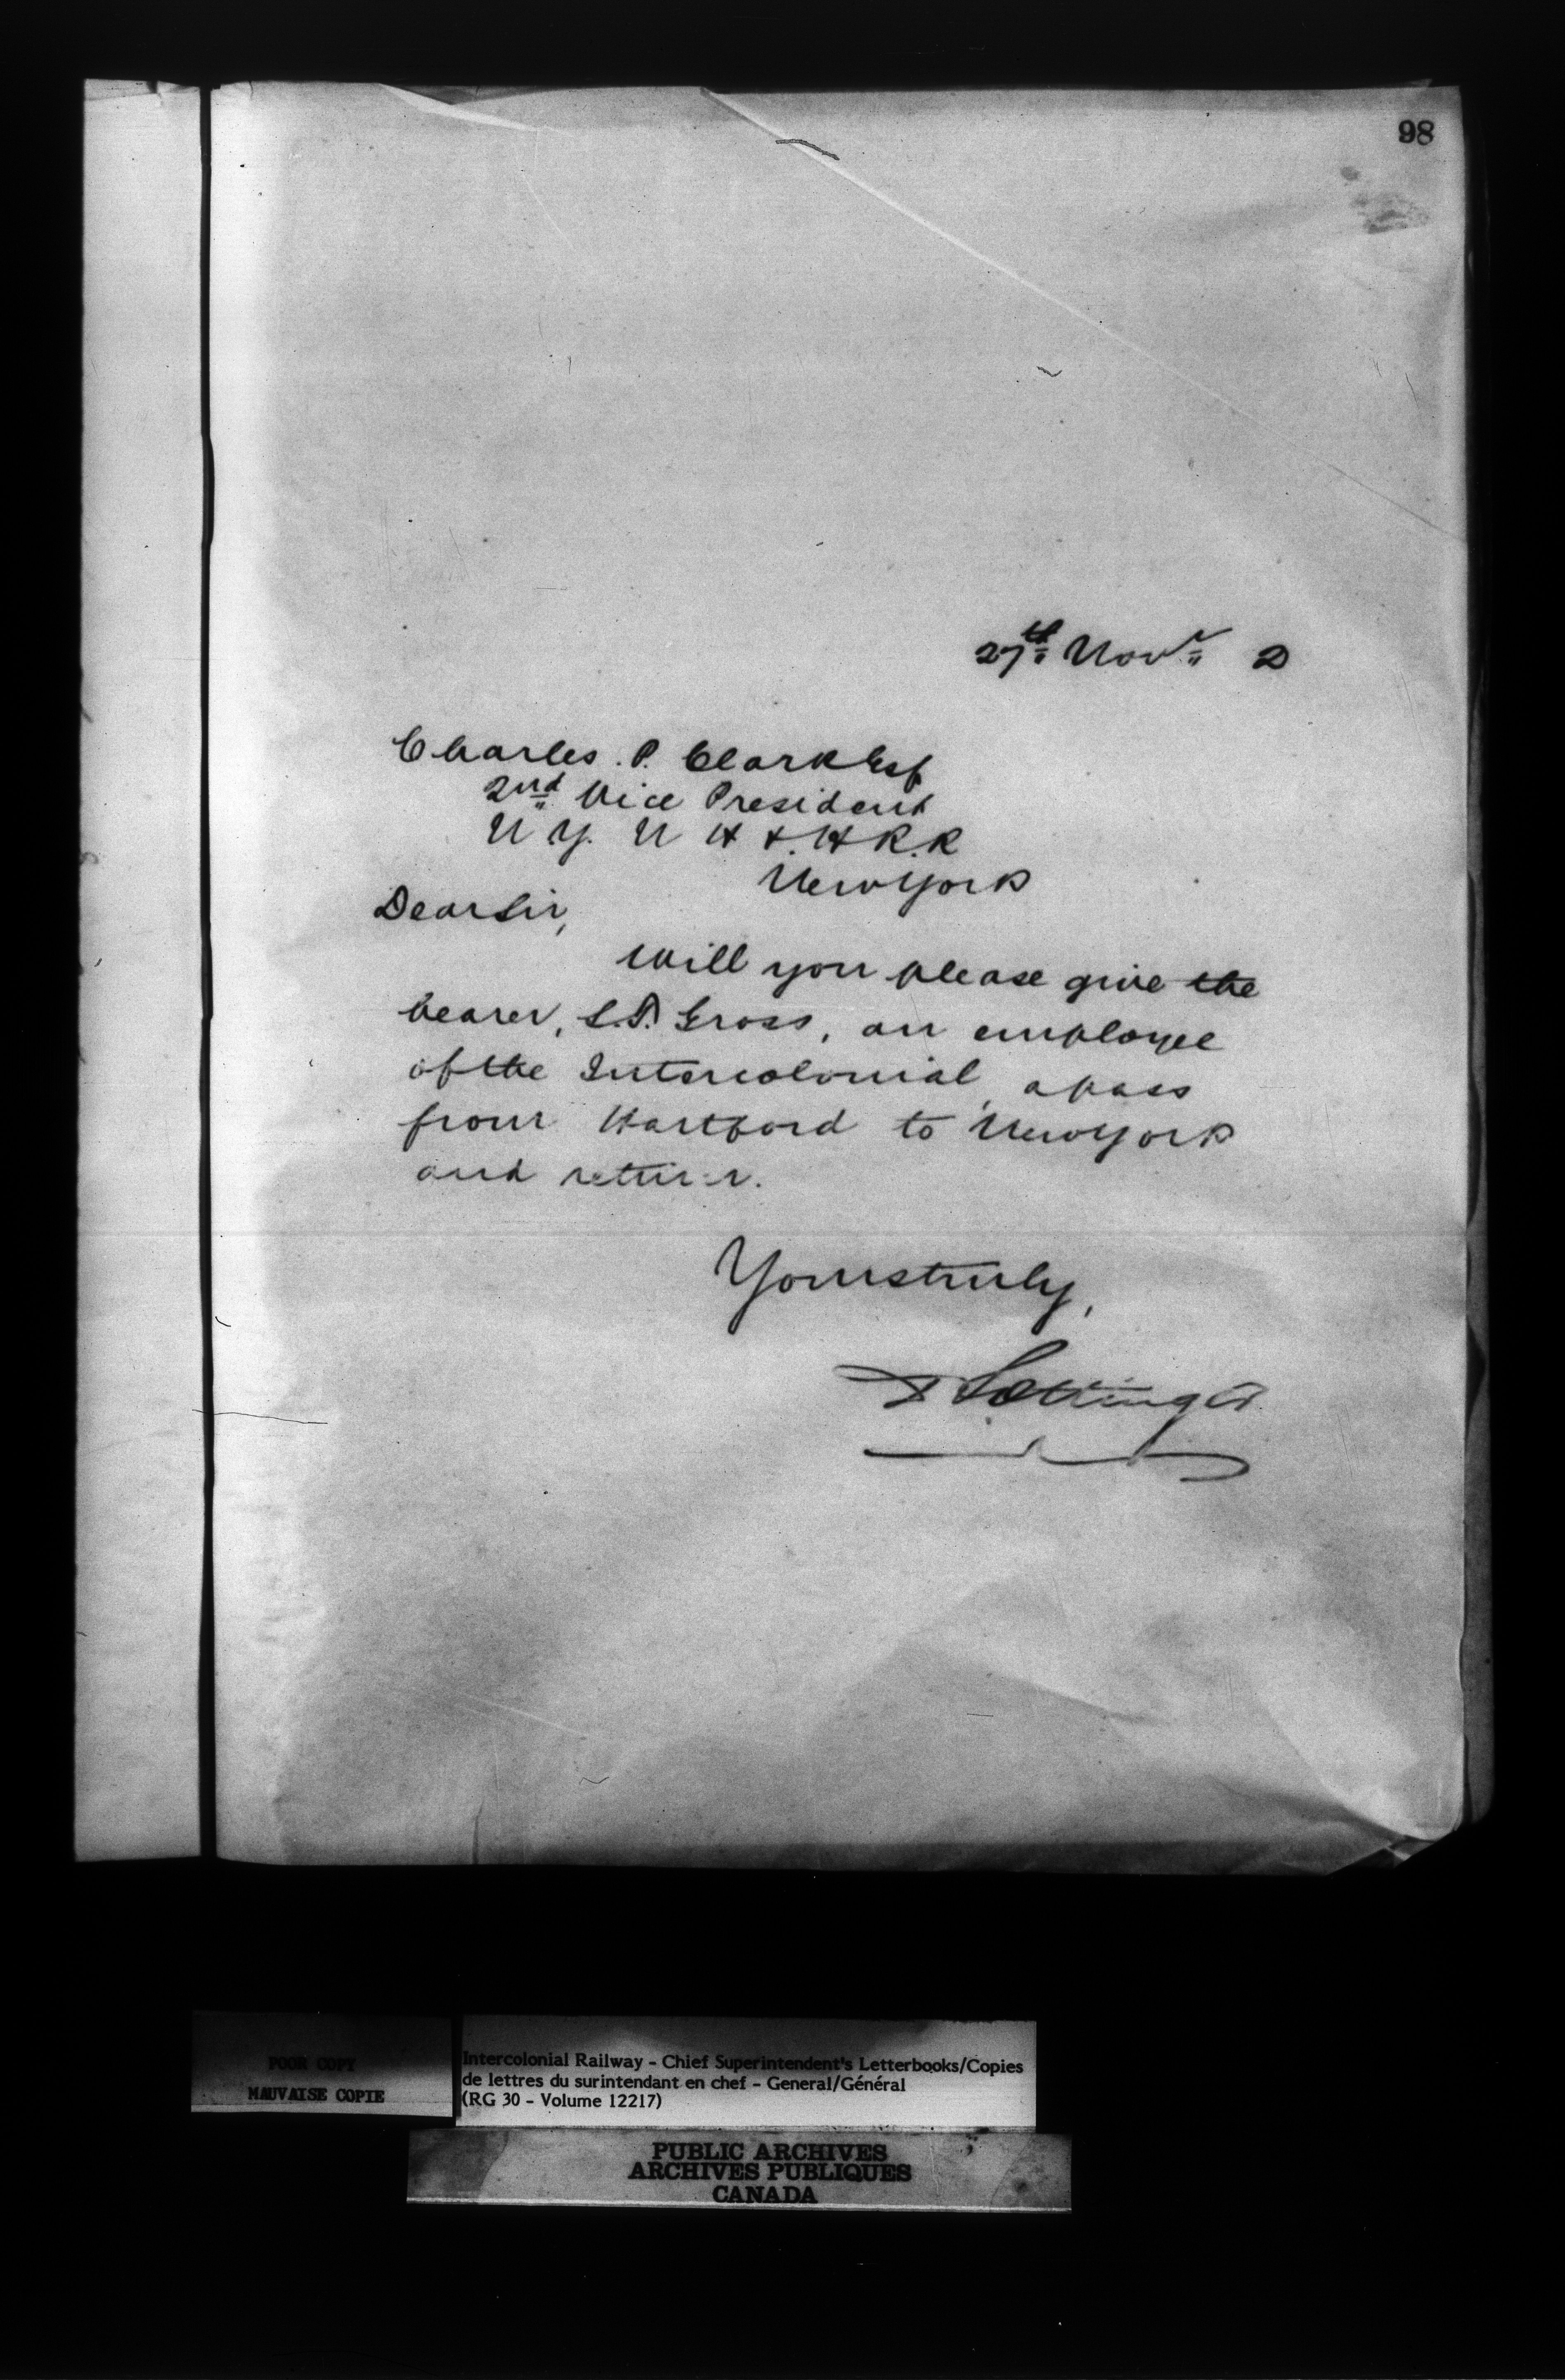 98
27th Novr 2
Charles. P. Clark Esq
2nd Vice President
N. Y. N H & H R.R
New York
Dear Sir,
Will you please give the
bearer, S.D. Gross, an employee
of the Intercolonial, a pass
from Hartford to New York
and return.
Yours truly,
D Pottinger
POOR COPY
MAUVAISE COPIE
Intercolonial Railway - Chief Superintendent's Letterbooks/Copies
de lettres du surintendant en chef - General/Général
(RG 30 - Volume 12217)
PUBLIC ARCHIVES
ARCHIVES PUBLIQUES
CANADA